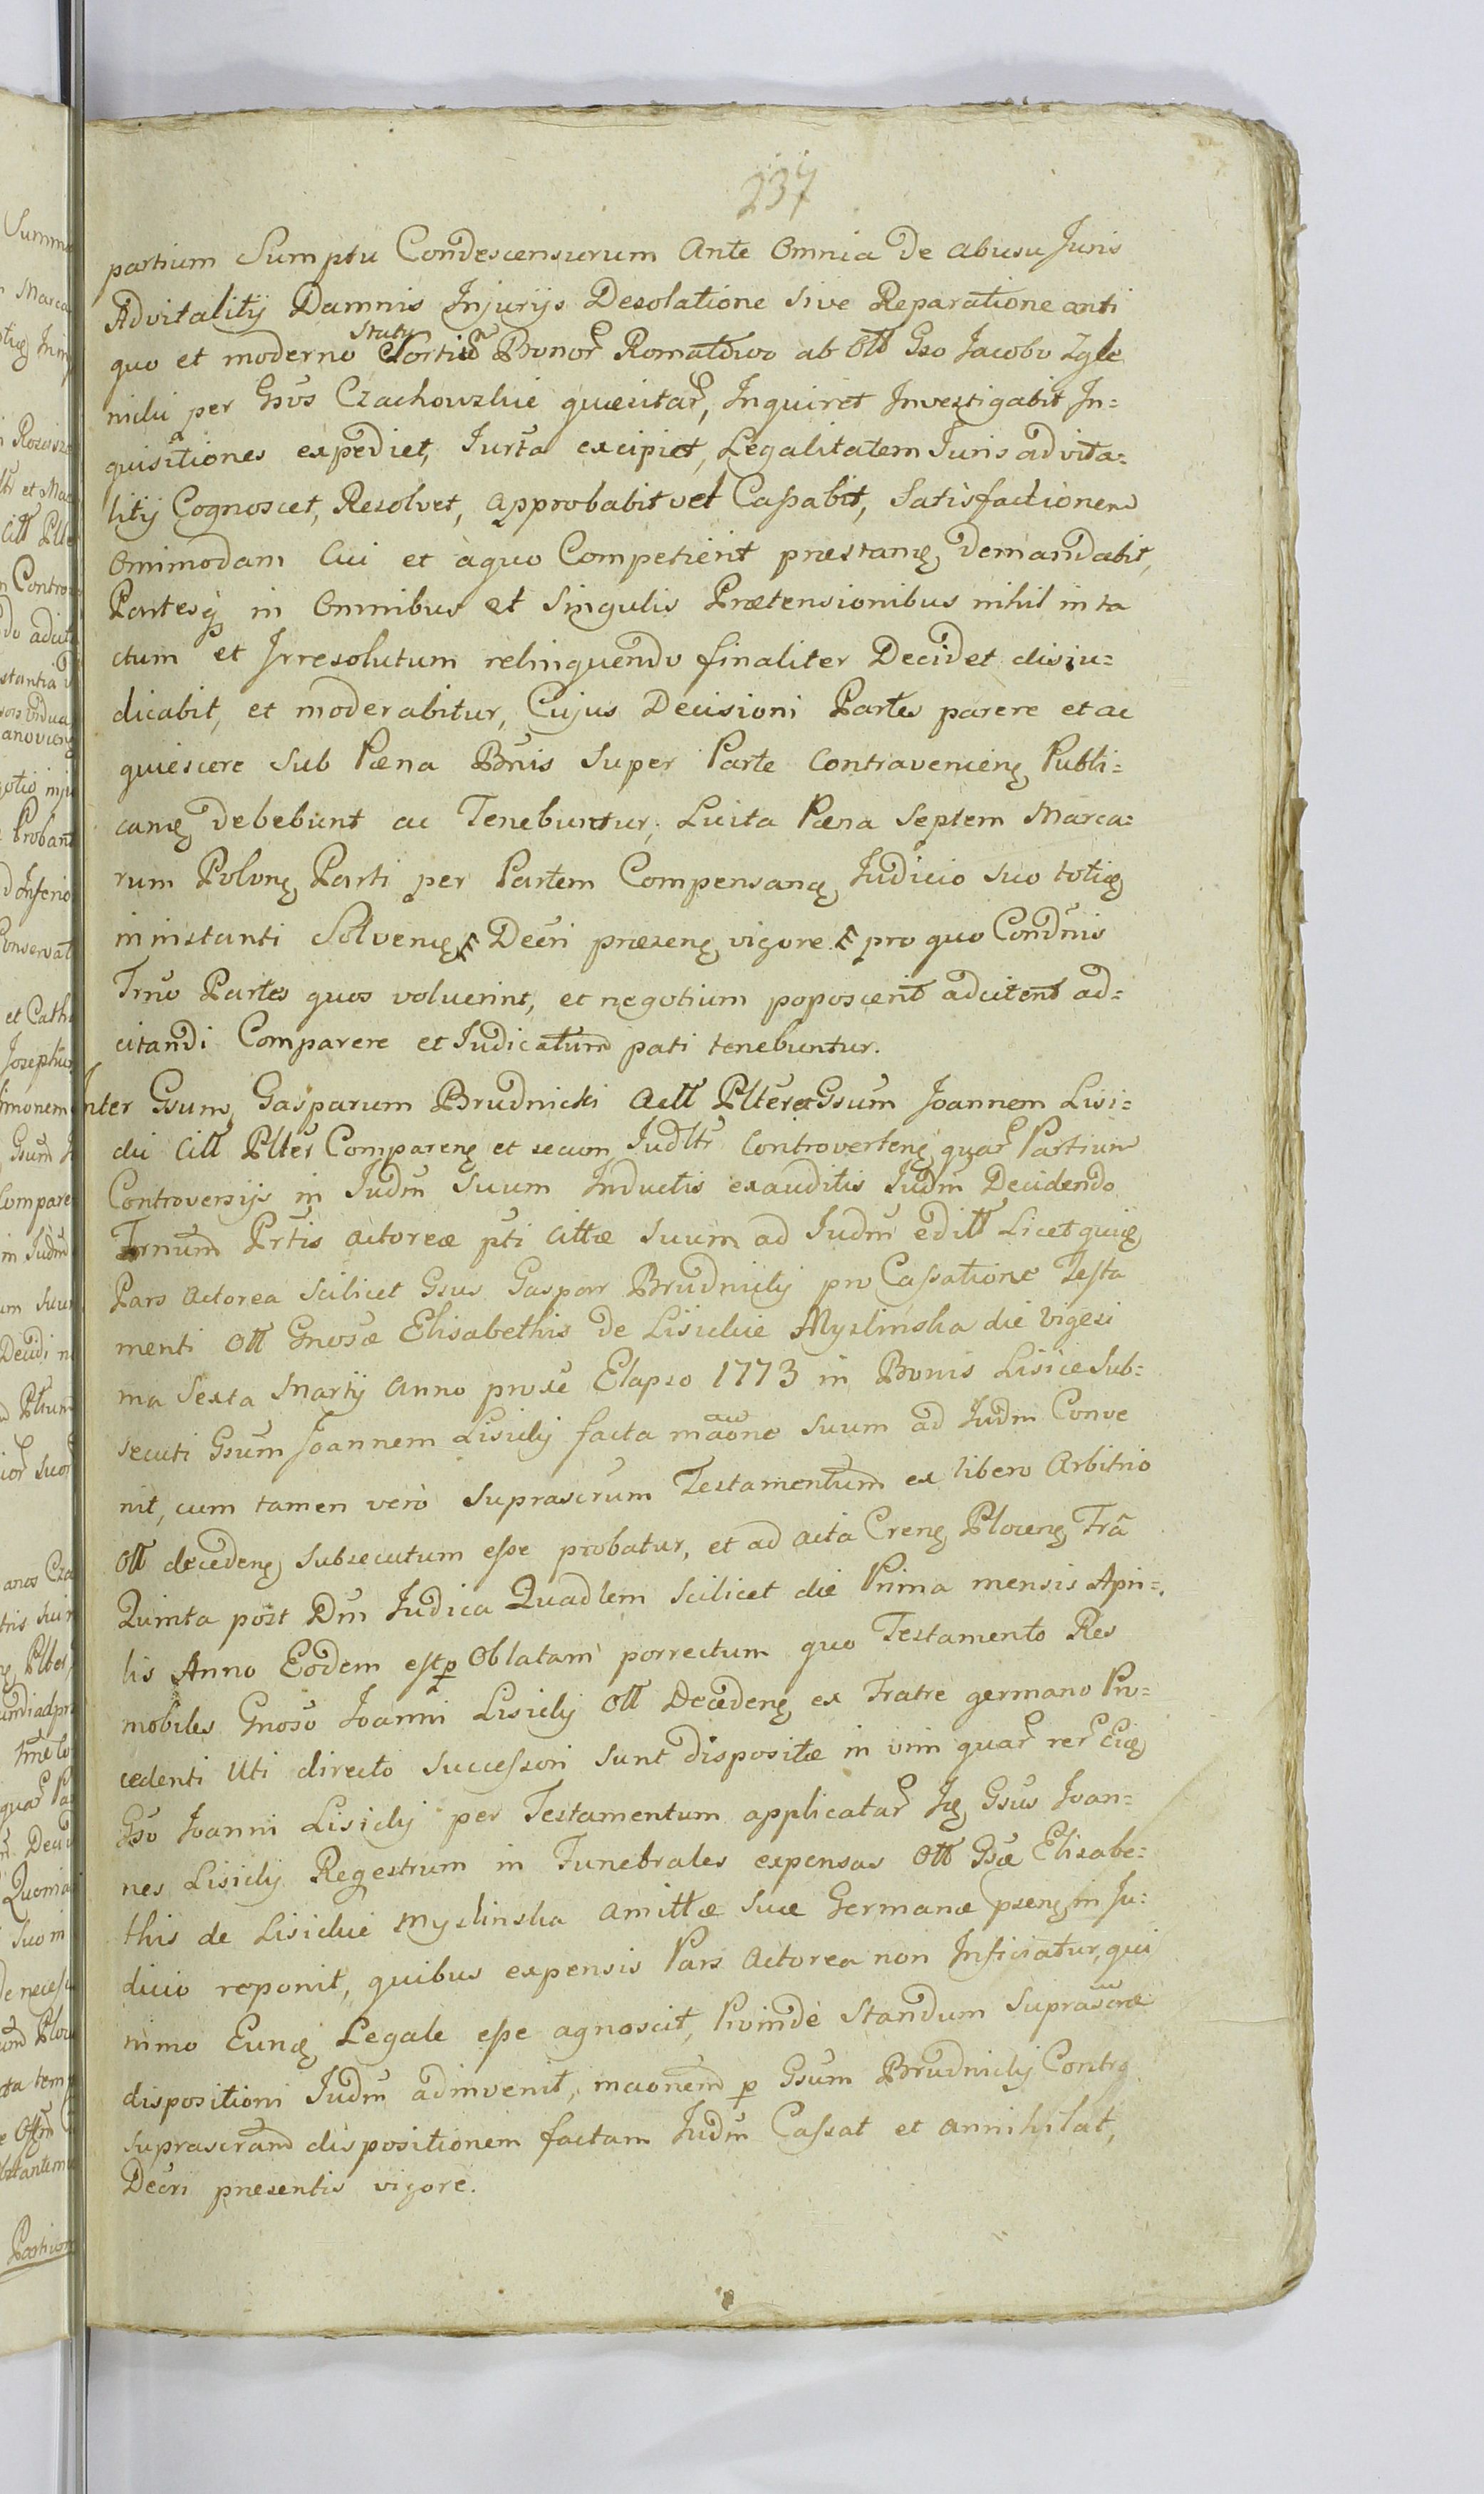 237
partium Sumptu Condescensurum Ante Omnia de abusu Juris
Advitalitÿ Damnis Injurÿs Desolatione sive Reparatione anti
quo et moderno Statu Sortiũ Bonor Romatowo ab Olĩ Gso Jacobo Zgle
nicki per Gsos Czachowskie quæsitar, Inquiret Investigabit In=
quisitiones expediet, Jurta excipiet, Legalitatem Juris advita=
litÿ Cognoscet, Resolvet, approbabit vel Caſsabit, Satisfactionem
Omimodam Cui et àquo Competierit præstanꝗ demandabit,
Partesq in Omnibus et Singulis Prætensionibus nihil inta
ctum et Irresolutum relinquendo finaliter Decidet disiu=
dicabit, et moderabitur, Cujus Decisioni Partes parere et ac
quiescere Sub Pæna Bnis Super Parte Contravenienꝗ Publi=
canꝗ debebunt ac Tenebuntur, Luita Pæna Septem Marca=
rum Polonꝗ Parti per Partem Compensanꝗ Judicio suo totiꝗ
ininstanti Solvenꝗ Decri præsenꝗ vigore pro quo Condnis
Trno Partes quos voluerint, et negotium poposcerit adcitent ad=
citandi Comparere et Judicatum pati tenebuntur.
Inter Gsum Gasparum Brudnicki Actt Plter et Gsum Joannem Lisi=
cki Citt Plter Comparenꝗ et secum Judltr Controvertenꝗ quar Partium
Controversÿs in Judm Suum Inductis exauditis Judm Decidendo
Trnum Prtis actoreæ pti Cittæ suum ad Judm editt Licet quiꝗ
Pars Actorea scilicet Gsus Gaspar Brudnicky pro Caſsatione Teſta
menti Ott Gnosæ Elisabethis de Lisickie Myslinska die vigesi
ma Sexta Martÿ Anno proxe Elapso 1773 in Bonis Lisice Sub=
secuti Gsum Joannem Lisicky facta maone suum ad Judm Conve
nit, cum tamen verò suprascrum Testamentum ex libero Arbitrio
Ott decedenꝗ subsecutum eſse probatur, et ad acta Crenꝗ Plocenꝗ Fra
Quinta post Dm Judica Quadlem scilicet die Prima mensis Apri=
lis Anno Eodem eſt p Oblatam porrectum quo Testamento Res
mobiles Gnoso Joanni Lisicky Ott Decedenꝗ ex Fratre germano Pro=
cedenti Uti directo Succeſsori sunt dispositæ in vim quar rer Eiꝗ
Gso Joanni Lisicky per Testamentum applicatar Iꝗ Gsus Joan=
nes Lisicky Regestrum in Funebrales expensas Ott Gsæ Elisabe=
this de Lisickie Myslinska Amittæ suæ Germanæ psenꝗ in Ju=
dicio reponit, quibus expensis Pars Actorea non Inficiatur, qui
nimo Eunꝗ Legale eſse agnoscit, Proinde Standum suprascræ
dispositioni Judm adinvenit, maonem p Gsum Brudnicky Contra
suprascram dispositionem factam Judm Caſsat et annihilat,
Decri præsentis vigore.